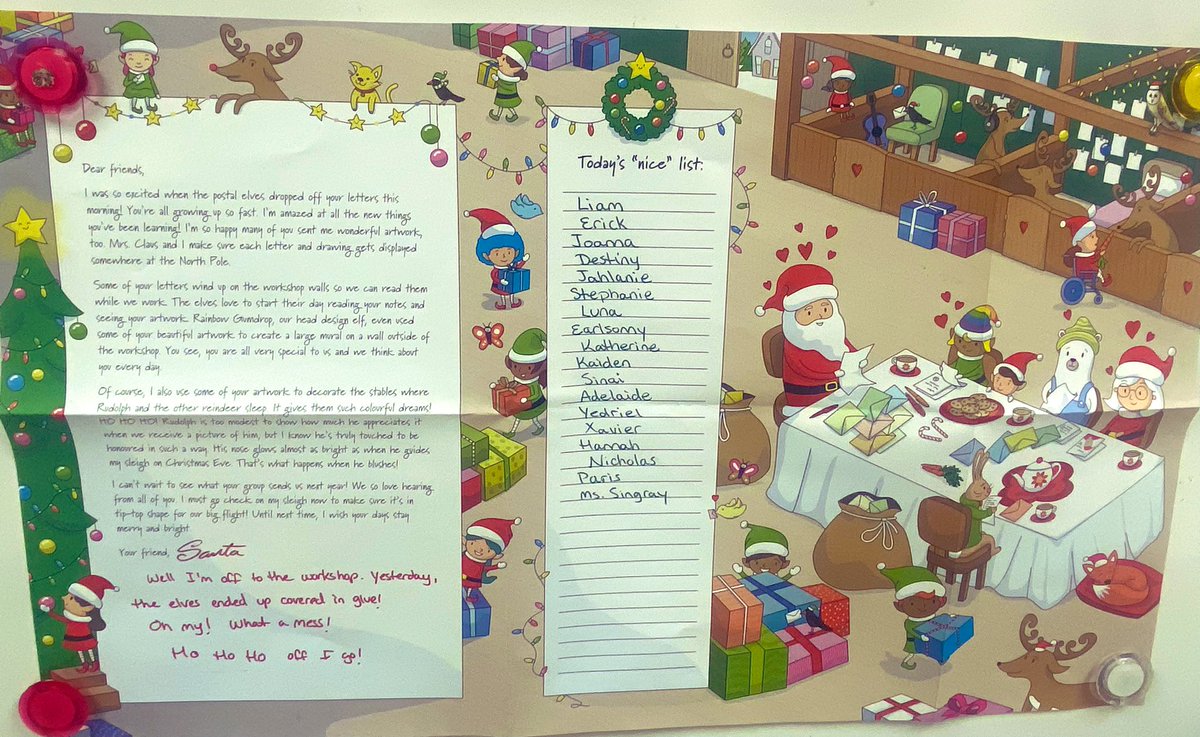 Dear friends,
I was so excited when the postal elves dropped off your letters this
morning! You're all growing up so fast. I'm amazed at all the new things
you've been learning! I'm so happy many of you sent me wonderful artwork,
too. Mrs. Claus and I make sure each letter and drawing gets displayed
somewhere at the North Pole.
Some of your letters wind up on the workshop walls so we can read them
while we work. The elves love to start their day reading your notes and
seeing your artwork. Rainbow Gumdrop, our head design elf, even used
some of your beautiful artwork to create a large mural on a wall outside of
the workshop. You see, you are all very special to us and we think about
you every day.
Of course, I also use some of your artwork to decorate the stables where
Rudolph and the other reindeer sleep. It gives them such colourful dreams!
HO HO HO! Rudolph is too modest to show how much he appreciates it
when we receive a picture of him, but I know he's truly touched to be
honoured in such a way. His nose glows almost as bright as when he guides
my sleigh on Christmas Eve. That's what happens when he blushes!
I can't wait to see what your group sends us next year! We so love hearing
from all of you. I must go check on my sleigh now to make sure it's in
tip-top shape for our big flight! Until next time, I wish your days stay
merry and bright.
Your friend, Santa
Well I'm off to the workshop. Yesterday,
the elves ended up covered in glue!
Oh my! What a mess!
Ho Ho Ho off I go!
Today's "nice" list:
Liam
Erick
Joanna
Destiny
Jahlanie
Stephanie
Luna
Earlsomy
Katherine
Kaiden
Sinai
Adelaide
Yedriel
Xavier
Hannah
Nicholas
Paris
ms. Singray